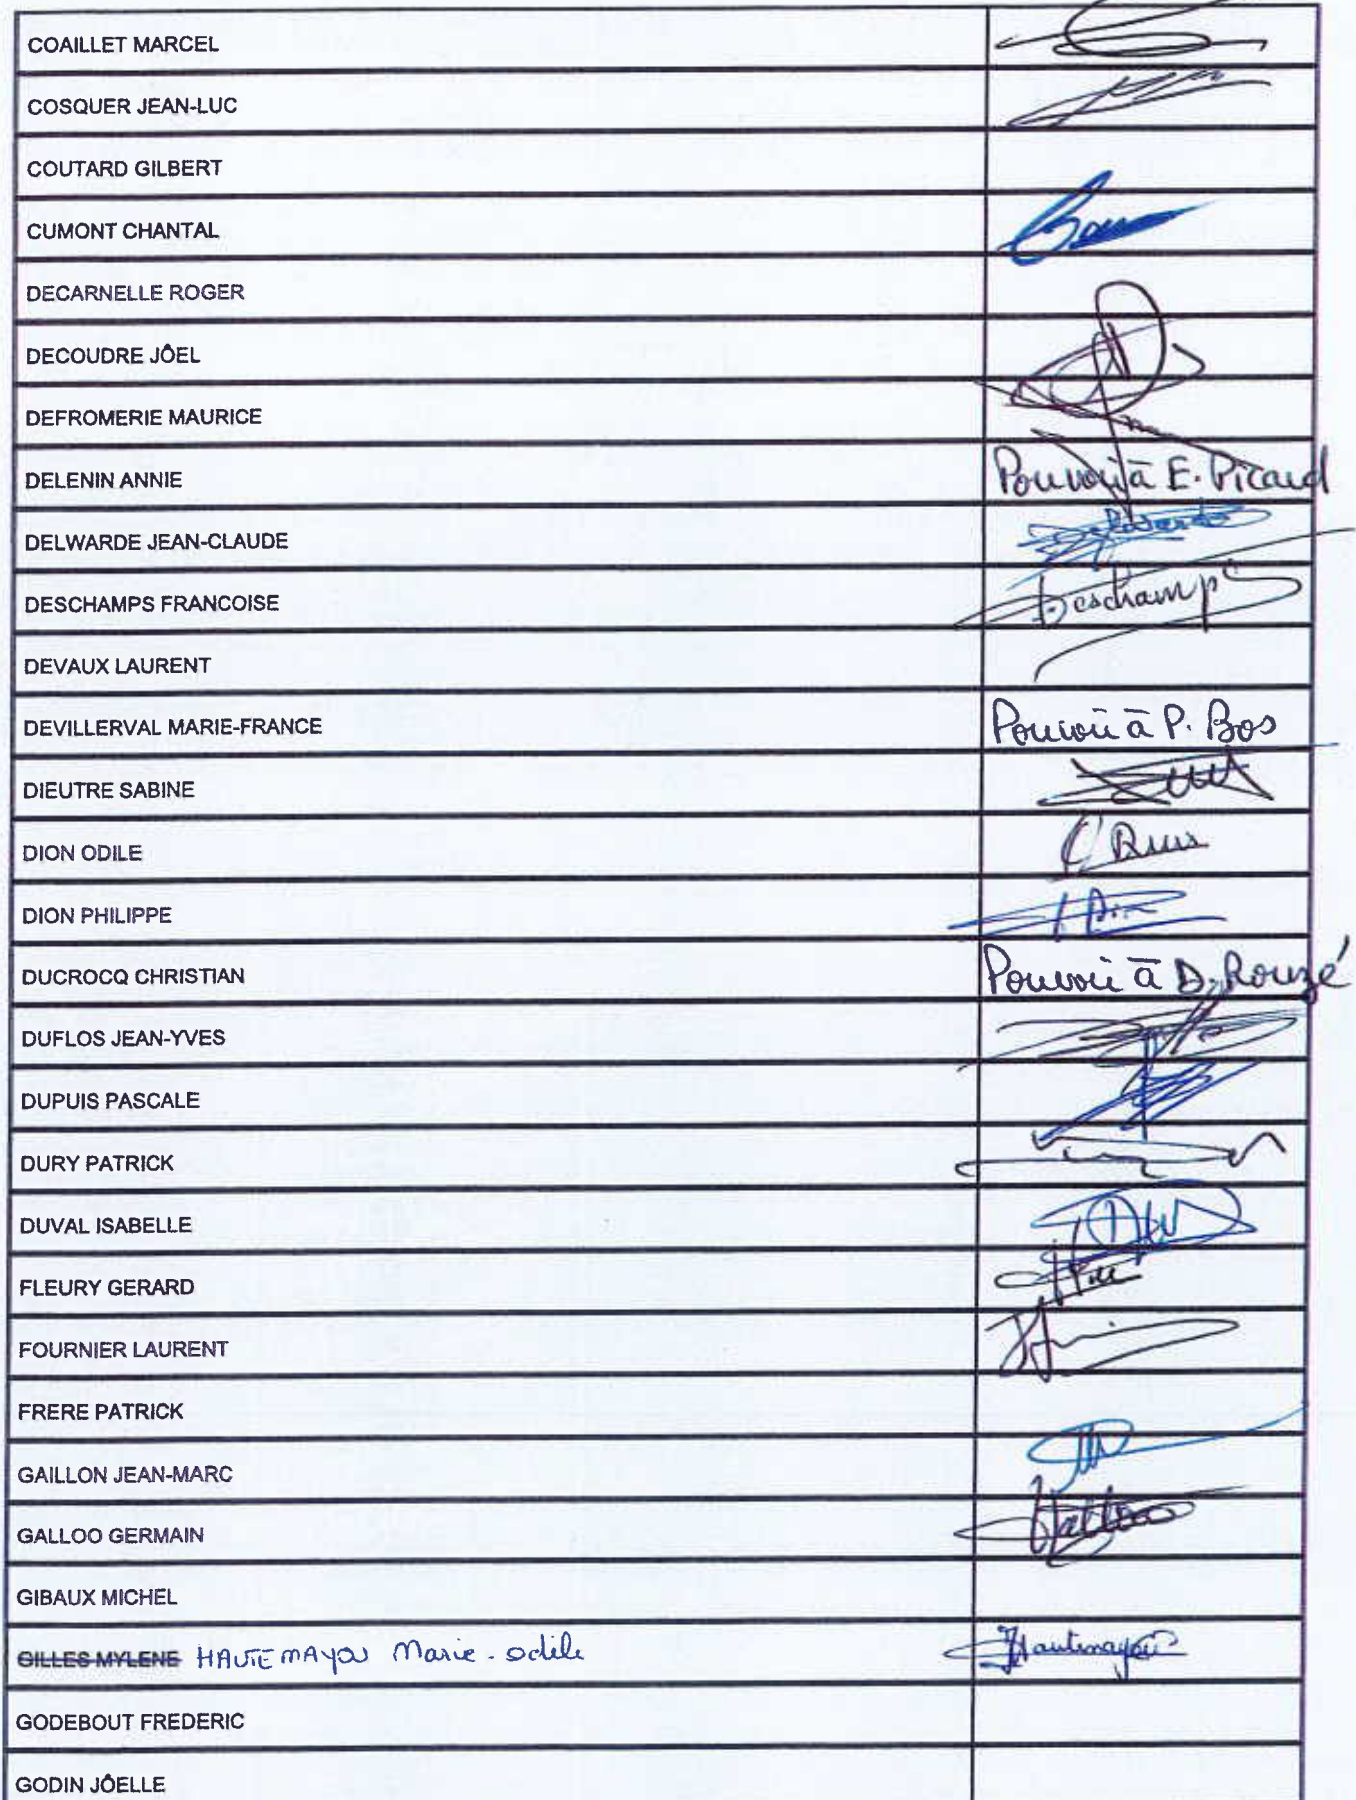 COAILLET MARCEL
COSQUER JEAN-LUC
COUTARD GILBERT
CUMONT CHANTAL
DECARNELLE ROGER
DECOUDRE JÔEL
DEFROMERIE MAURICE
DELENIN ANNIE Pouvoir à E. Picard
DELWARDE JEAN-CLAUDE Delwarde
DESCHAMPS FRANCOISE Deschamps
DEVAUX LAURENT
DEVILLERVAL MARIE-FRANCE Pouvoir à P. Bos
DIEUTRE SABINE
DION ODILE
DION PHILIPPE
DUCROCQ CHRISTIAN Pouvoir à D. Rouzé
DUFLOS JEAN-YVES
DUPUIS PASCALE
DURY PATRICK
DUVAL ISABELLE
FLEURY GERARD
FOURNIER LAURENT
FRERE PATRICK
GAILLON JEAN-MARC
GALLOO GERMAIN
GIBAUX MICHEL
GILLES MYLENE HAUTEMAYOU Marie-odile Hautemayou
GODEBOUT FREDERIC
GODIN JÔELLE